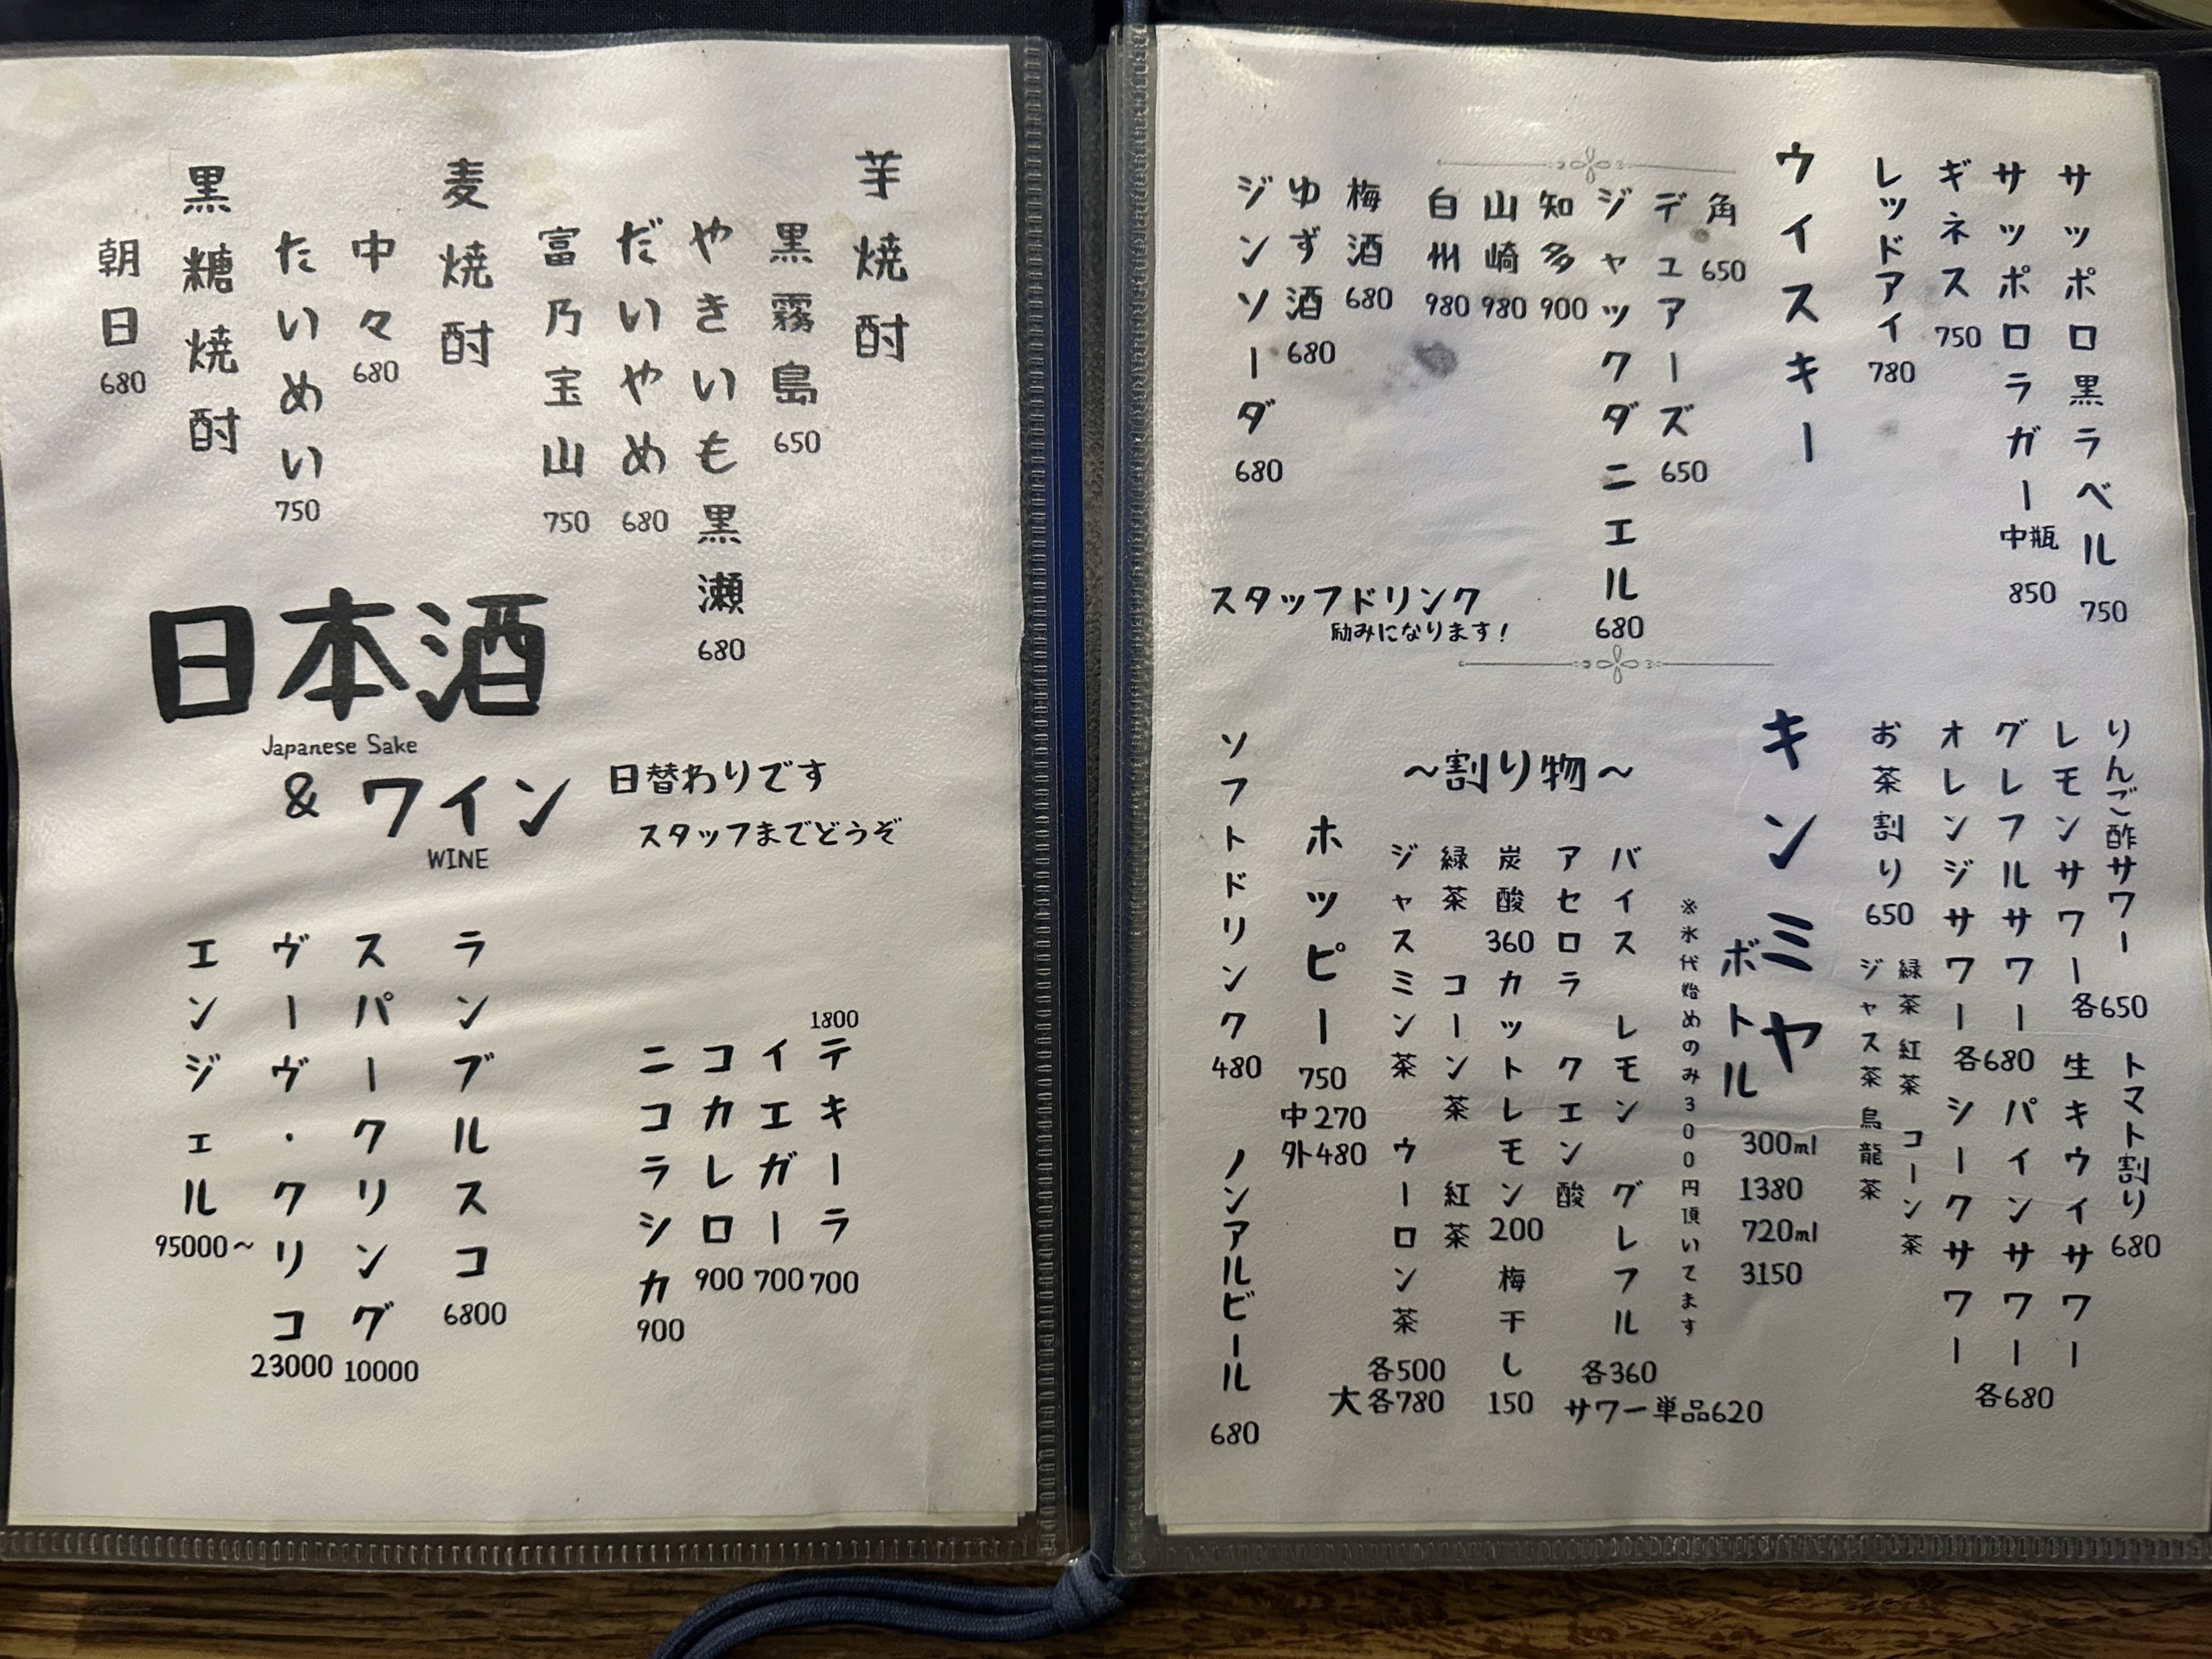 サッポロ黒ラベル 750
サッポロラガー 中瓶 850
ギネス 750
レッドアイ 780
ウイスキー
角 650
デュアーズ 650
ジャックダニエル 680
知多 900
山崎 980
白州 980
梅酒 680
ゆず酒 680
ジンソーダ 680
スタッフドリンク
励みになります!
りんご酢サワー
レモンサワー
各650
グレフルサワー
オレンジサワー
各680
お茶割り 650
緑茶 紅茶 コーン茶
ジャスミン茶 烏龍茶
トマト割り 680
生キウイサワー
パインサワー
シークサワー
各680
キンミヤ
ボトル
300ml
1380
720ml
3150
※氷代始めのみ300円頂いてます
~割り物~
バイス レモン グレフル
アセロラ クエン酸
各360
サワー単品620
炭酸 360
カットレモン 200
梅干し 150
緑茶 コーン茶 紅茶
ジャスミン茶 ウーロン茶
各500
大各780
ホッピー 750
中270
外480
ソフトドリンク 480
ノンアルビール 680
芋焼酎
黒霧島 650
やきいも黒瀬 680
だいやめ 680
富乃宝山 750
麦焼酎
中々 680
たいめい 750
黒糖焼酎
朝日 680
日本酒
Japanese Sake
& ワイン
WINE
日替わりです
スタッフまでどうぞ
1800
テキーラ 700
イエガー 700
コカレロ 900
ニコラシカ 900
ランブルスコ 6800
スパークリング 10000
ヴーヴ・クリコ 23000
エンジェル 95000~